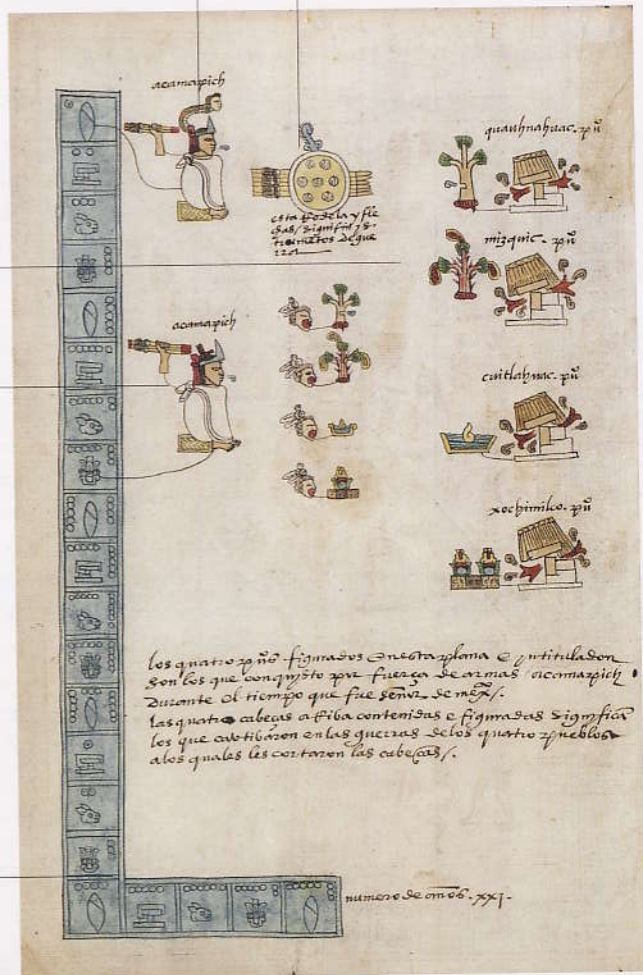 acamapich
esta Rodela y fle
chas / significan yns
trumentos de gue
rra
quauhnahuac. pũ
mizquic. pũ
acamapich
cuitlahuac. pũ
xochimilco. pũ
los quatro pũs figurados en esta plana e yntitulados
son los que conquisto por fuerça de armas / acamapich
durante el tiempo que fue señor de mexº/.
las quatro cabeças aRiba contenidas e figuradas significã
los que cavtibaron en las guerras de los quatro pueblos
a los quales les cortaron las cabeças/.
numero de años. xxj.